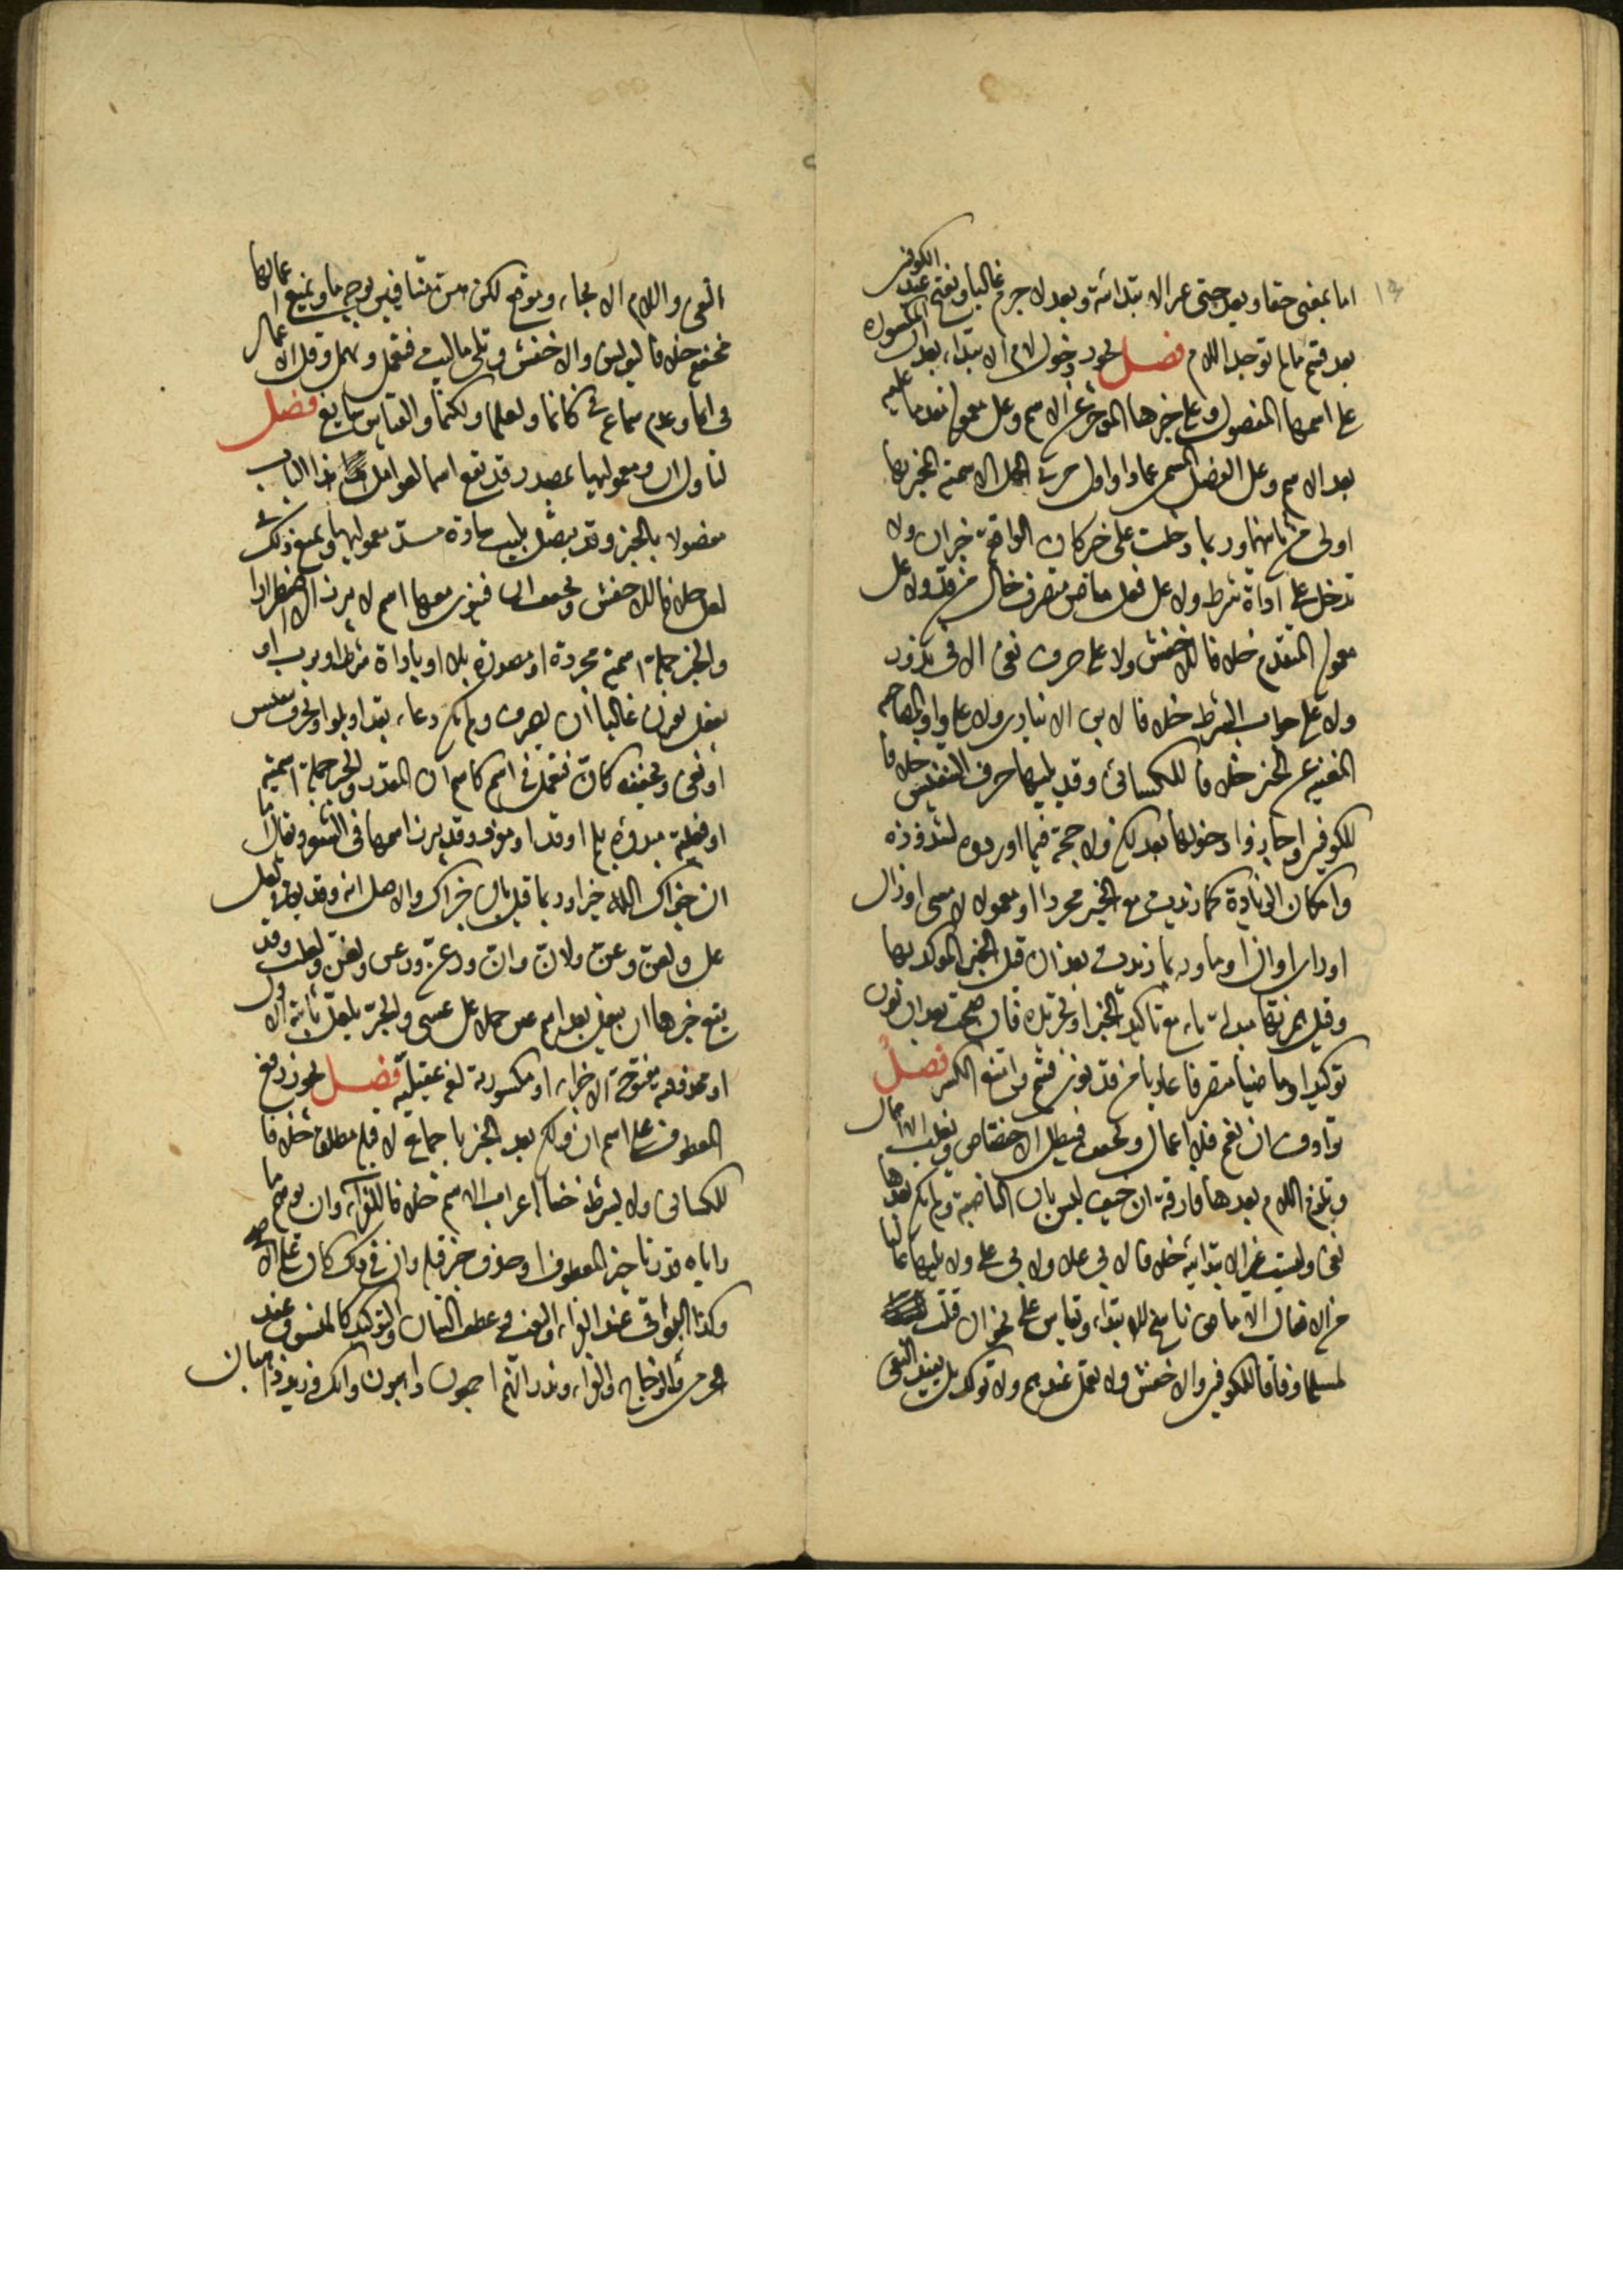 اما بمعنى حقا وبعد حتى غير الابتدائية وبعد لا جرم غالبا وتفتح عند الكوفيين
بعد قسم ما لم توجد اللام فصل يجوز دخول لام الابتداء بعد ان المكسورة
على اسمها المفصول وعلى خبرها المؤخر عن الاسم وعلى معموله مقدما عليه
بعد الاسم وعلى الفصل المسمى عمادا واول جزءي الجملة الاسمية المخبر بها
اولى من ثانيهما وربما دخلت على خبر كان الواقعة خبر ان ولا
تدخل على اداة شرط ولا على فعل ماض متصرف خال من قد ولا على
معموله المتقدم خلافا للاخفش ولا على حرف نفي الا في ندور
ولا على جواب الشرط خلافا لابن الانباري ولا على واو المصاحبة
المغنية عن الخبر خلافا للكسائي وقد يليها حرف التنفيس خلافا
للكوفيين واجازوا دخولها بعد لكن ولا حجة فيما اوردوه لشذوذه
وامكان الزيادة كما زيدت مع الخبر مجردا او معمولا لامسى او زال
او راى او ان او ما وربما زيدت بعد ان قبل الخبر المؤكد بها
وقبل همزتها مبدلة هاء مع تاكيد الخبر او تجريده فان صحبت بعد ان نون
توكيد او ماضيا متصرفا عاريا من قد نوي قسم وامتنع الكسر فصل
ترادف ان نعم فلا اعمال وتخفف فيبطل الاختصاص ويغلب الاهمال
وتلزم اللام بعدها فارقة ان خيف لبس بان النافية ولم يكن بعدها
نفي وليست غير الابتدائية خلافا لابي علي ولا يليها غالبا
من الافعال الا ماض ناسخ للابتداء ويقاس على نحو ان قتلت
لمسلما وفاقا للكوفيين والاخفش ولا تعمل عندهم ولا تؤكد بل تفيد النفي
النفي واللام الايجاب وموقع لكن بين متنافيين بوجه ما ويمنع اعمالها
مخففة خلافا ليونس والاخفش وتلي ما ليت فتعمل وتهمل وقل الاعمال
في انما وعدم سماعه في كانما ولعلما ولكنما والقياس سايغ فصل
لتاول ان ومعموليها بمصدر قد تقع اسما لعوامل هذا الباب
مفصولا بالخبر وقد يتصل بليت سادة مسد معموليها ويمنع ذلك في
لعل خلافا للاخفش وتخفف ان فينوى معها اسم لا يبرز الا اضطرارا
والخبر جملة اسمية مجردة او مصدرة بلا او باداة شرط او برب او
بفعل يقترن غالبا ان تصرف ولم يكن دعاء بقد او بلو او بحرف تنفيس
او نفي وتخفف كان فتعمل في اسم كاسم ان المقدر والخبر جملة اسمية
او فعلية مبدوءة بلم او قد او مفرد وقد يبرز اسمها في الشعر ويقال اما
ان جزاك الله خيرا وربما قيل ان جزاك والاصل انه وقد يقال في لعل
عل ولعن وعن ولان وان ورعن ورغن ولغن ولعلت وقد
يقع خبرها ان يفعل بعد اسم عين حملا على عسى والجر بلعل ثابتة الاول
او محذوفته مفتوحة الاخر او مكسورته لغة عقيلية فصل يجوز رفع
المعطوف على اسم ان ولكن بعد الخبر باجماع لا قبله مطلقا خلافا
للكسائي ولا بشرط خفاء اعراب الاسم خلافا للفراء وان توهم ما
راياه قدر تاخير المعطوف او حذف خبر قبله وان في ذلك كان على الاصح
وكذا البواقي عند الفراء والنعت وعطف البيان والتوكيد كالمنسوق عند
الجرمي والزجاج والفراء وندر انهم اجمعون ذاهبون وانك وزيد ذاهبان